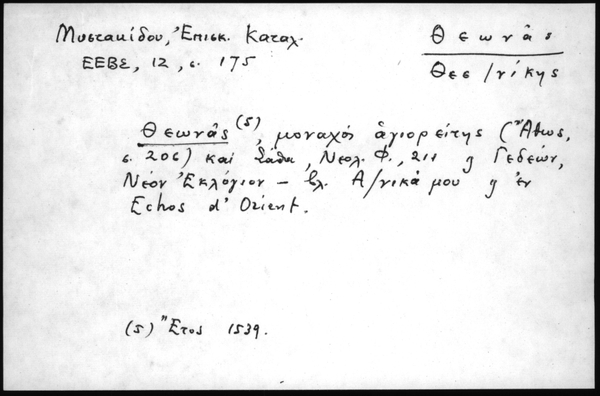 Μυστακίδου, Ἐπισκ. Καταχ.
ΕΕΒΣ, 12, σ. 175
Θεωνᾶς
Θεσ/νίκης
Θεωνᾶς (5), μοναχὸς ἁγιορείτης (Ἄθως,
σ. 206) καὶ Σάθα, Νεολ. Φ., 211 ᾳ Γεδεών,
Νέον Ἐκλόγιον – βλ. Α/νικά μου ᾳ ἐν
Echos d'Orient.
(5) Ἔτος 1539.